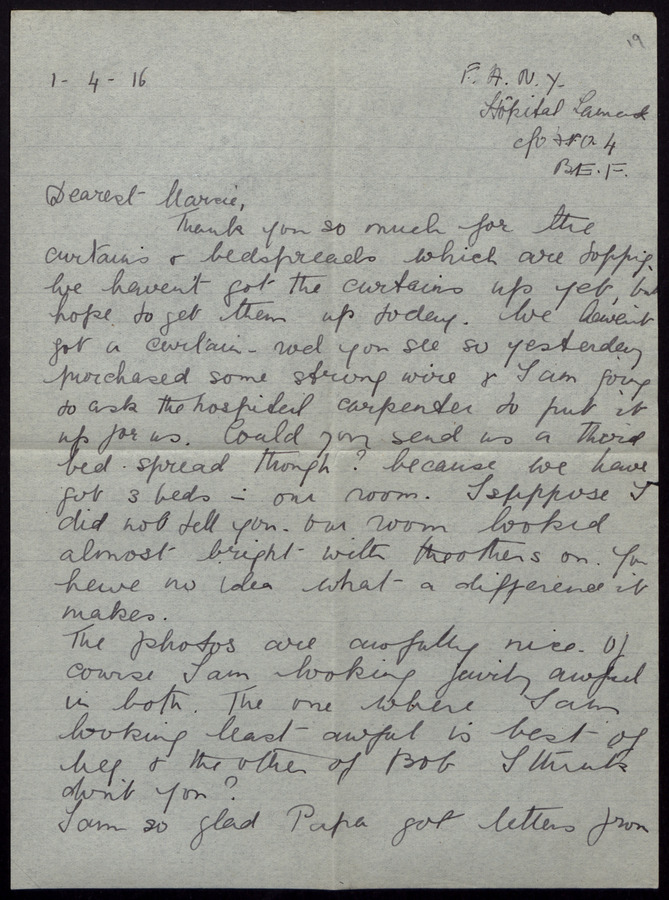 19
1 - 4 - 16
F. A. N. Y.
Hôpital Lamark
c/o 4
B.E.F.
Dearest Marcie,
Thank you so much for the
curtains & bedspreads which are topping.
We haven't got the curtains up yet, but
hope to get them up today. We haven't
got a curtain-rod you see so yesterday
purchased some strong wire & I am going
to ask the hospital carpenter to put it
up for us. Could you send us a third
bed-spread though? because we have
got 3 beds in our room. I suppose I
did not tell you. Our room looked
almost bright with the others on. You
have no idea what a difference it
makes.
The photos are awfully nice. Of
course I am looking awful
in both. The one where I am
looking least awful is best of
Meg & the other of Bob I think
don't you?
I am so glad Papa got letters from